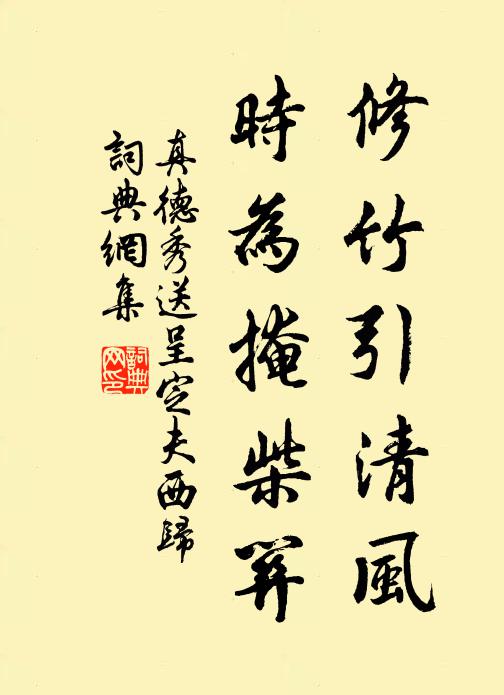 修竹引清風
時為掩柴關
真德秀送呈定夫西歸
詞典網集
詞典网印